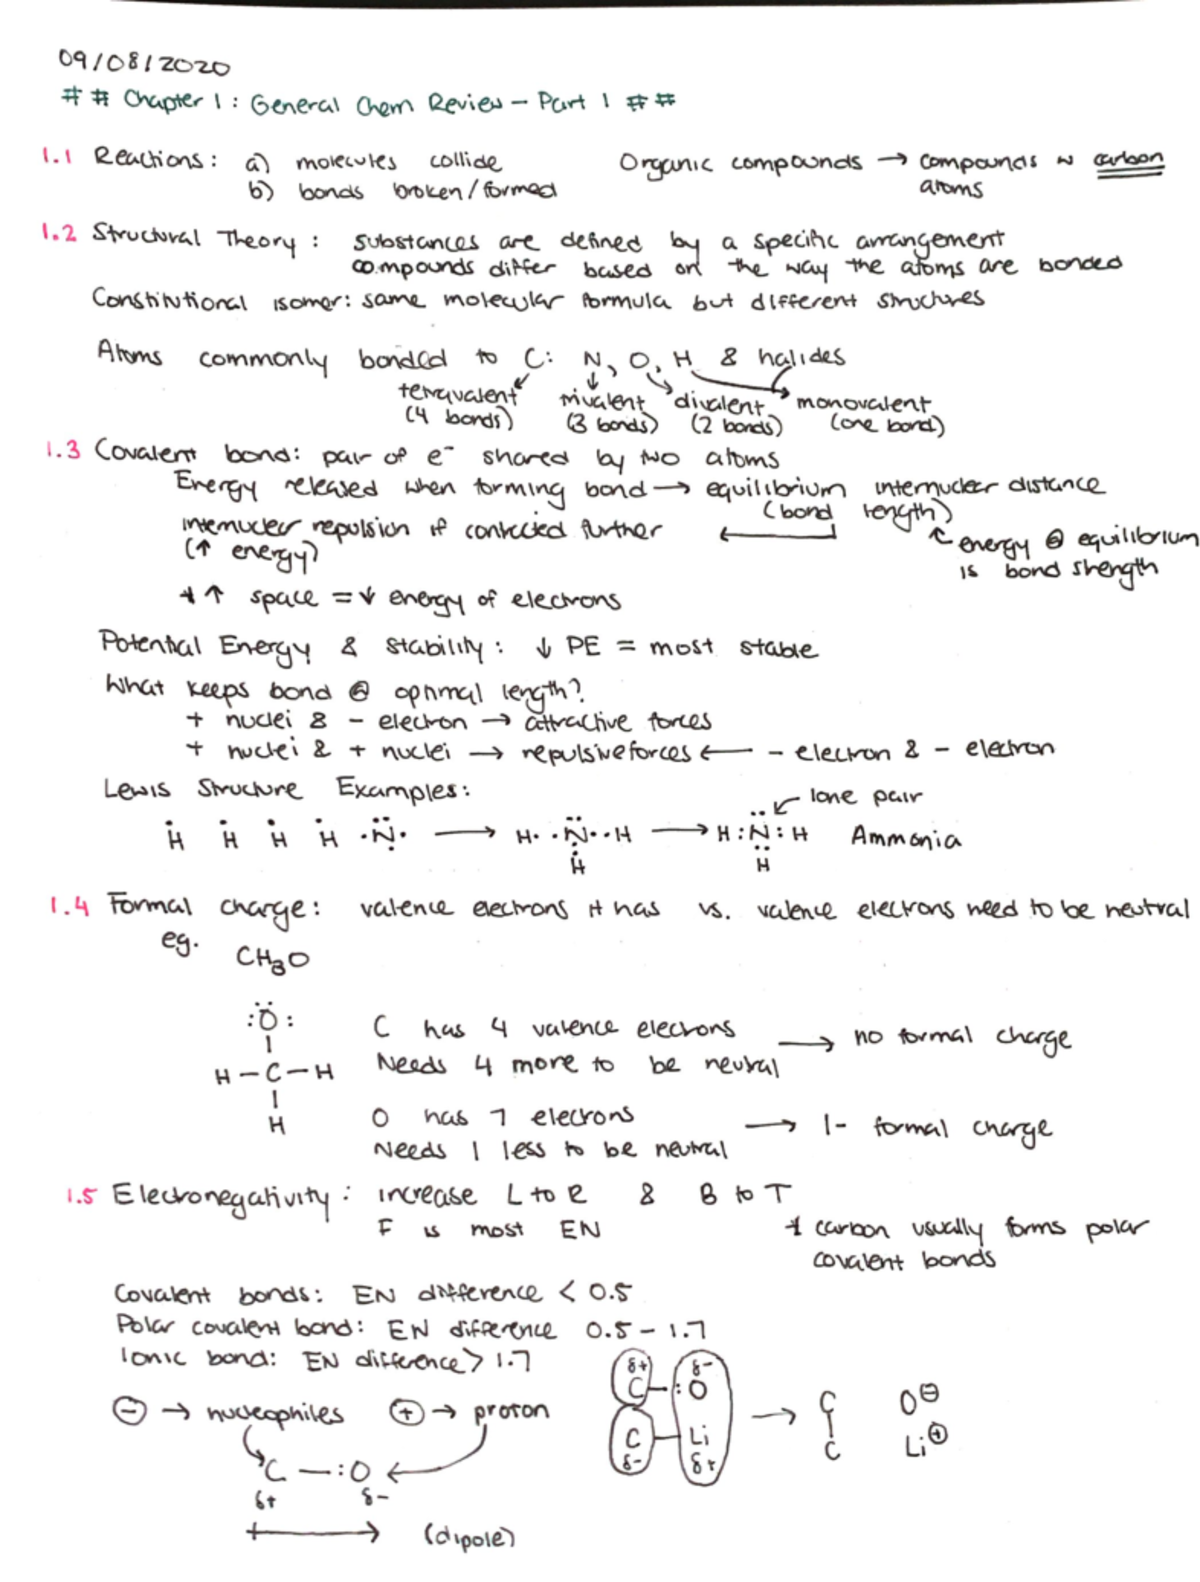 09/08/2020
## Chapter 1: General Chem Review - Part 1 ##
1.1 Reactions: a) molecules collide
b) bonds broken/formed
Organic compounds → compounds w carbon
atoms
1.2 Structural Theory: substances are defined by a specific arrangement
compounds differ based on the way the atoms are bonded
Constitutional isomer: same molecular formula but different structures
Atoms commonly bonded to C: N, O, H & halides
tetravalent (4 bonds) trivalent (3 bonds) divalent (2 bonds) monovalent (one bond)
1.3 Covalent bond: pair of e⁻ shared by two atoms
Energy released when forming bond → equilibrium internuclear distance
(bond length)
internuclear repulsion if contracted further ←
(↑ energy)
↖ energy @ equilibrium
is bond strength
* ↑ space = ↓ energy of electrons
Potential Energy & Stability: ↓ PE = most stable
What keeps bond @ optimal length?
+ nuclei & - electron → attractive forces
+ nuclei & + nuclei → repulsive forces ← - electron & - electron
Lewis Structure Examples:
lone pair
Ḣ Ḣ Ḣ Ḣ ·N̈· → H· ·N̈· ·H → H:N̈:H Ammonia
Ḣ H
1.4 Formal charge: valence electrons it has vs. valence electrons need to be neutral
eg. CH₃O
:Ö:
H-C-H
H
C has 4 valence electrons
Needs 4 more to be neutral → no formal charge
O has 7 electrons
Needs 1 less to be neutral → 1- formal charge
1.5 Electronegativity: increase L to R & B to T
F is most EN
* carbon usually forms polar
covalent bonds
Covalent bonds: EN difference < 0.5
Polar covalent bond: EN difference 0.5 - 1.7
Ionic bond: EN difference > 1.7
⊖ → nucleophiles ⊕ → proton
C-:O
δ+ δ-
(dipole)
δ+ δ-
C-:O
C-Li
δ- δ+
→ C O⊖
C Li⊕